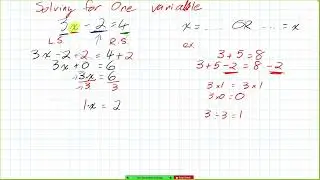 Solving for One variable
3x - 2 = 4
L.S. R.S.
3x - 2 + 2 = 4 + 2
3x + 0 = 6
3x = 6
3 3
1·x = 2
x = ... OR ... = x
ex.
3 + 5 = 8
3 + 5 - 2 = 8 - 2
3 × 1 = 3 × 1
3 × 0 = 0
3 ÷ 3 = 1